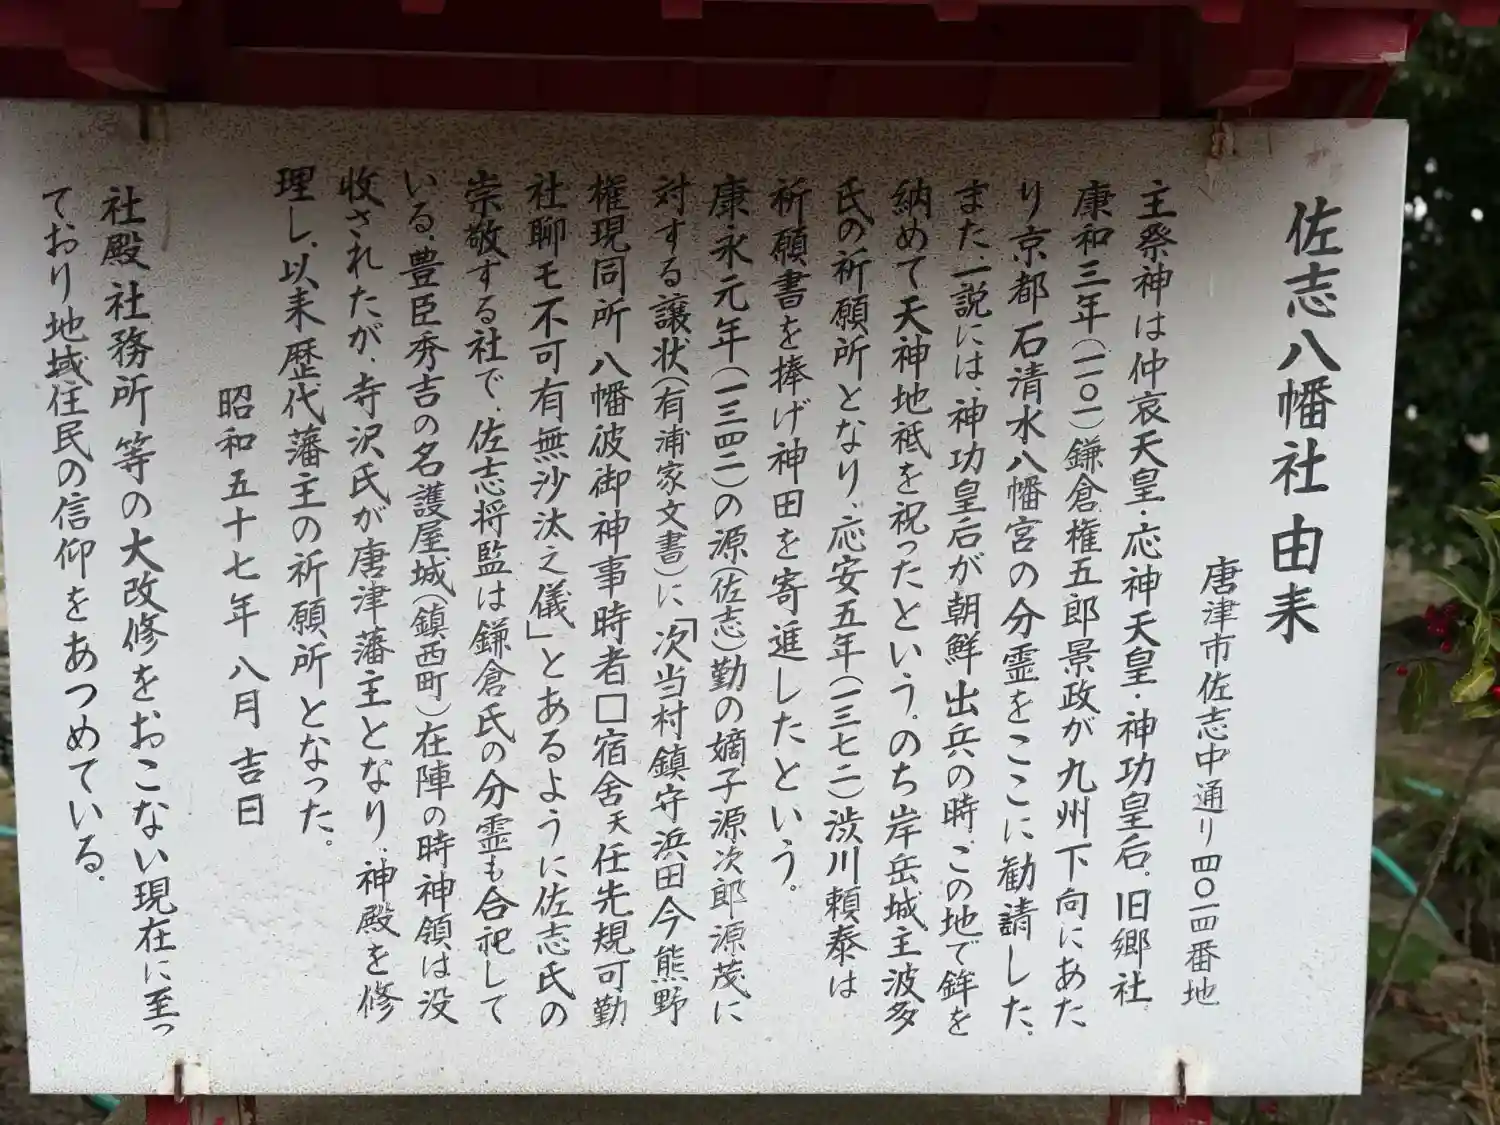 佐志八幡社由来
唐津市佐志中通り四〇一四番地
主祭神は仲哀天皇・応神天皇・神功皇后。旧郷社
康和三年(一一〇一)鎌倉権五郎景政が九州下向にあた
り京都石清水八幡宮の分霊をここに勧請した。
また、一説には、神功皇后が朝鮮出兵の時、この地で鉾を
納めて天神地祗を祝ったという。のち岸岳城主波多
氏の祈願所となり、応安五年(一三七二)渋川頼泰は
祈願書を捧げ神田を寄進したという。
康永元年(一三四二)の源(佐志)勤の嫡子源次郎源茂に
対する譲状(有浦家文書)に「次当村鎮守浜田今熊野
権現同所八幡彼御神事時者□宿舎天任先規可勤
社聊モ不可有無沙汰之儀」とあるように佐志氏の
崇敬する社で、佐志将監は鎌倉氏の分霊も合祀して
いる。豊臣秀吉の名護屋城(鎮西町)在陣の時神領は没
収されたが、寺沢氏が唐津藩主となり、神殿を修
理し、以来歴代藩主の祈願所となった。
昭和五十七年八月吉日
社殿社務所等の大改修をおこない現在に至っ
ており地域住民の信仰をあつめている。